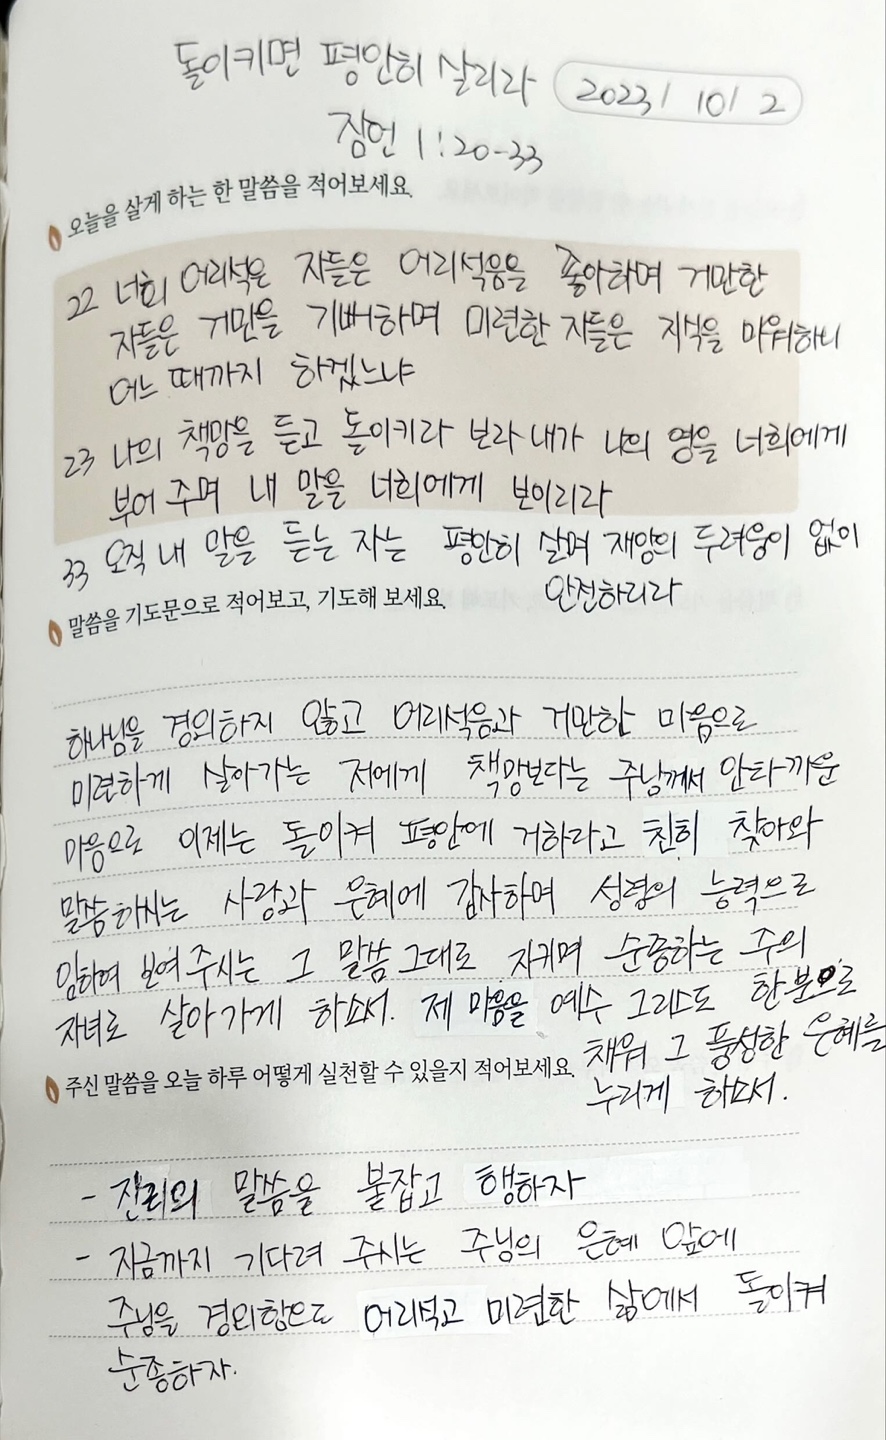 돌이키면 평안히 살리라 2023/ 10/ 2
잠언 1:20-33
오늘을 살게 하는 한 말씀을 적어보세요.
22 너희 어리석은 자들은 어리석음을 좋아하며 거만한
자들은 거만을 기뻐하며 미련한 자들은 지식을 미워하니
어느 때까지 하겠느냐
23 나의 책망을 듣고 돌이키라 보라 내가 나의 영을 너희에게
부어 주며 내 말을 너희에게 보이리라
33 오직 내 말을 듣는 자는 평안히 살며 재앙의 두려움이 없이
안전하리라
말씀을 기도문으로 적어보고, 기도해 보세요.
하나님을 경외하지 않고 어리석음과 거만한 마음으로
미련하게 살아가는 저에게 책망보다는 주님께서 안타까운
마음으로 이제는 돌이켜 평안에 거하라고 친히 찾아와
말씀하시는 사랑과 은혜에 감사하며 성령의 능력으로
임하여 보여주시는 그 말씀 그대로 지키며 순종하는 주의
자녀로 살아가게 하소서. 제 마음을 예수 그리스도 한분으로
채워 그 풍성한 은혜를
누리게 하소서.
주신 말씀을 오늘 하루 어떻게 실천할 수 있을지 적어보세요.
- 진리의 말씀을 붙잡고 행하자
- 지금까지 기다려 주시는 주님의 은혜 앞에
주님을 경외함으로 어리석고 미련한 삶에서 돌이켜
순종하자.